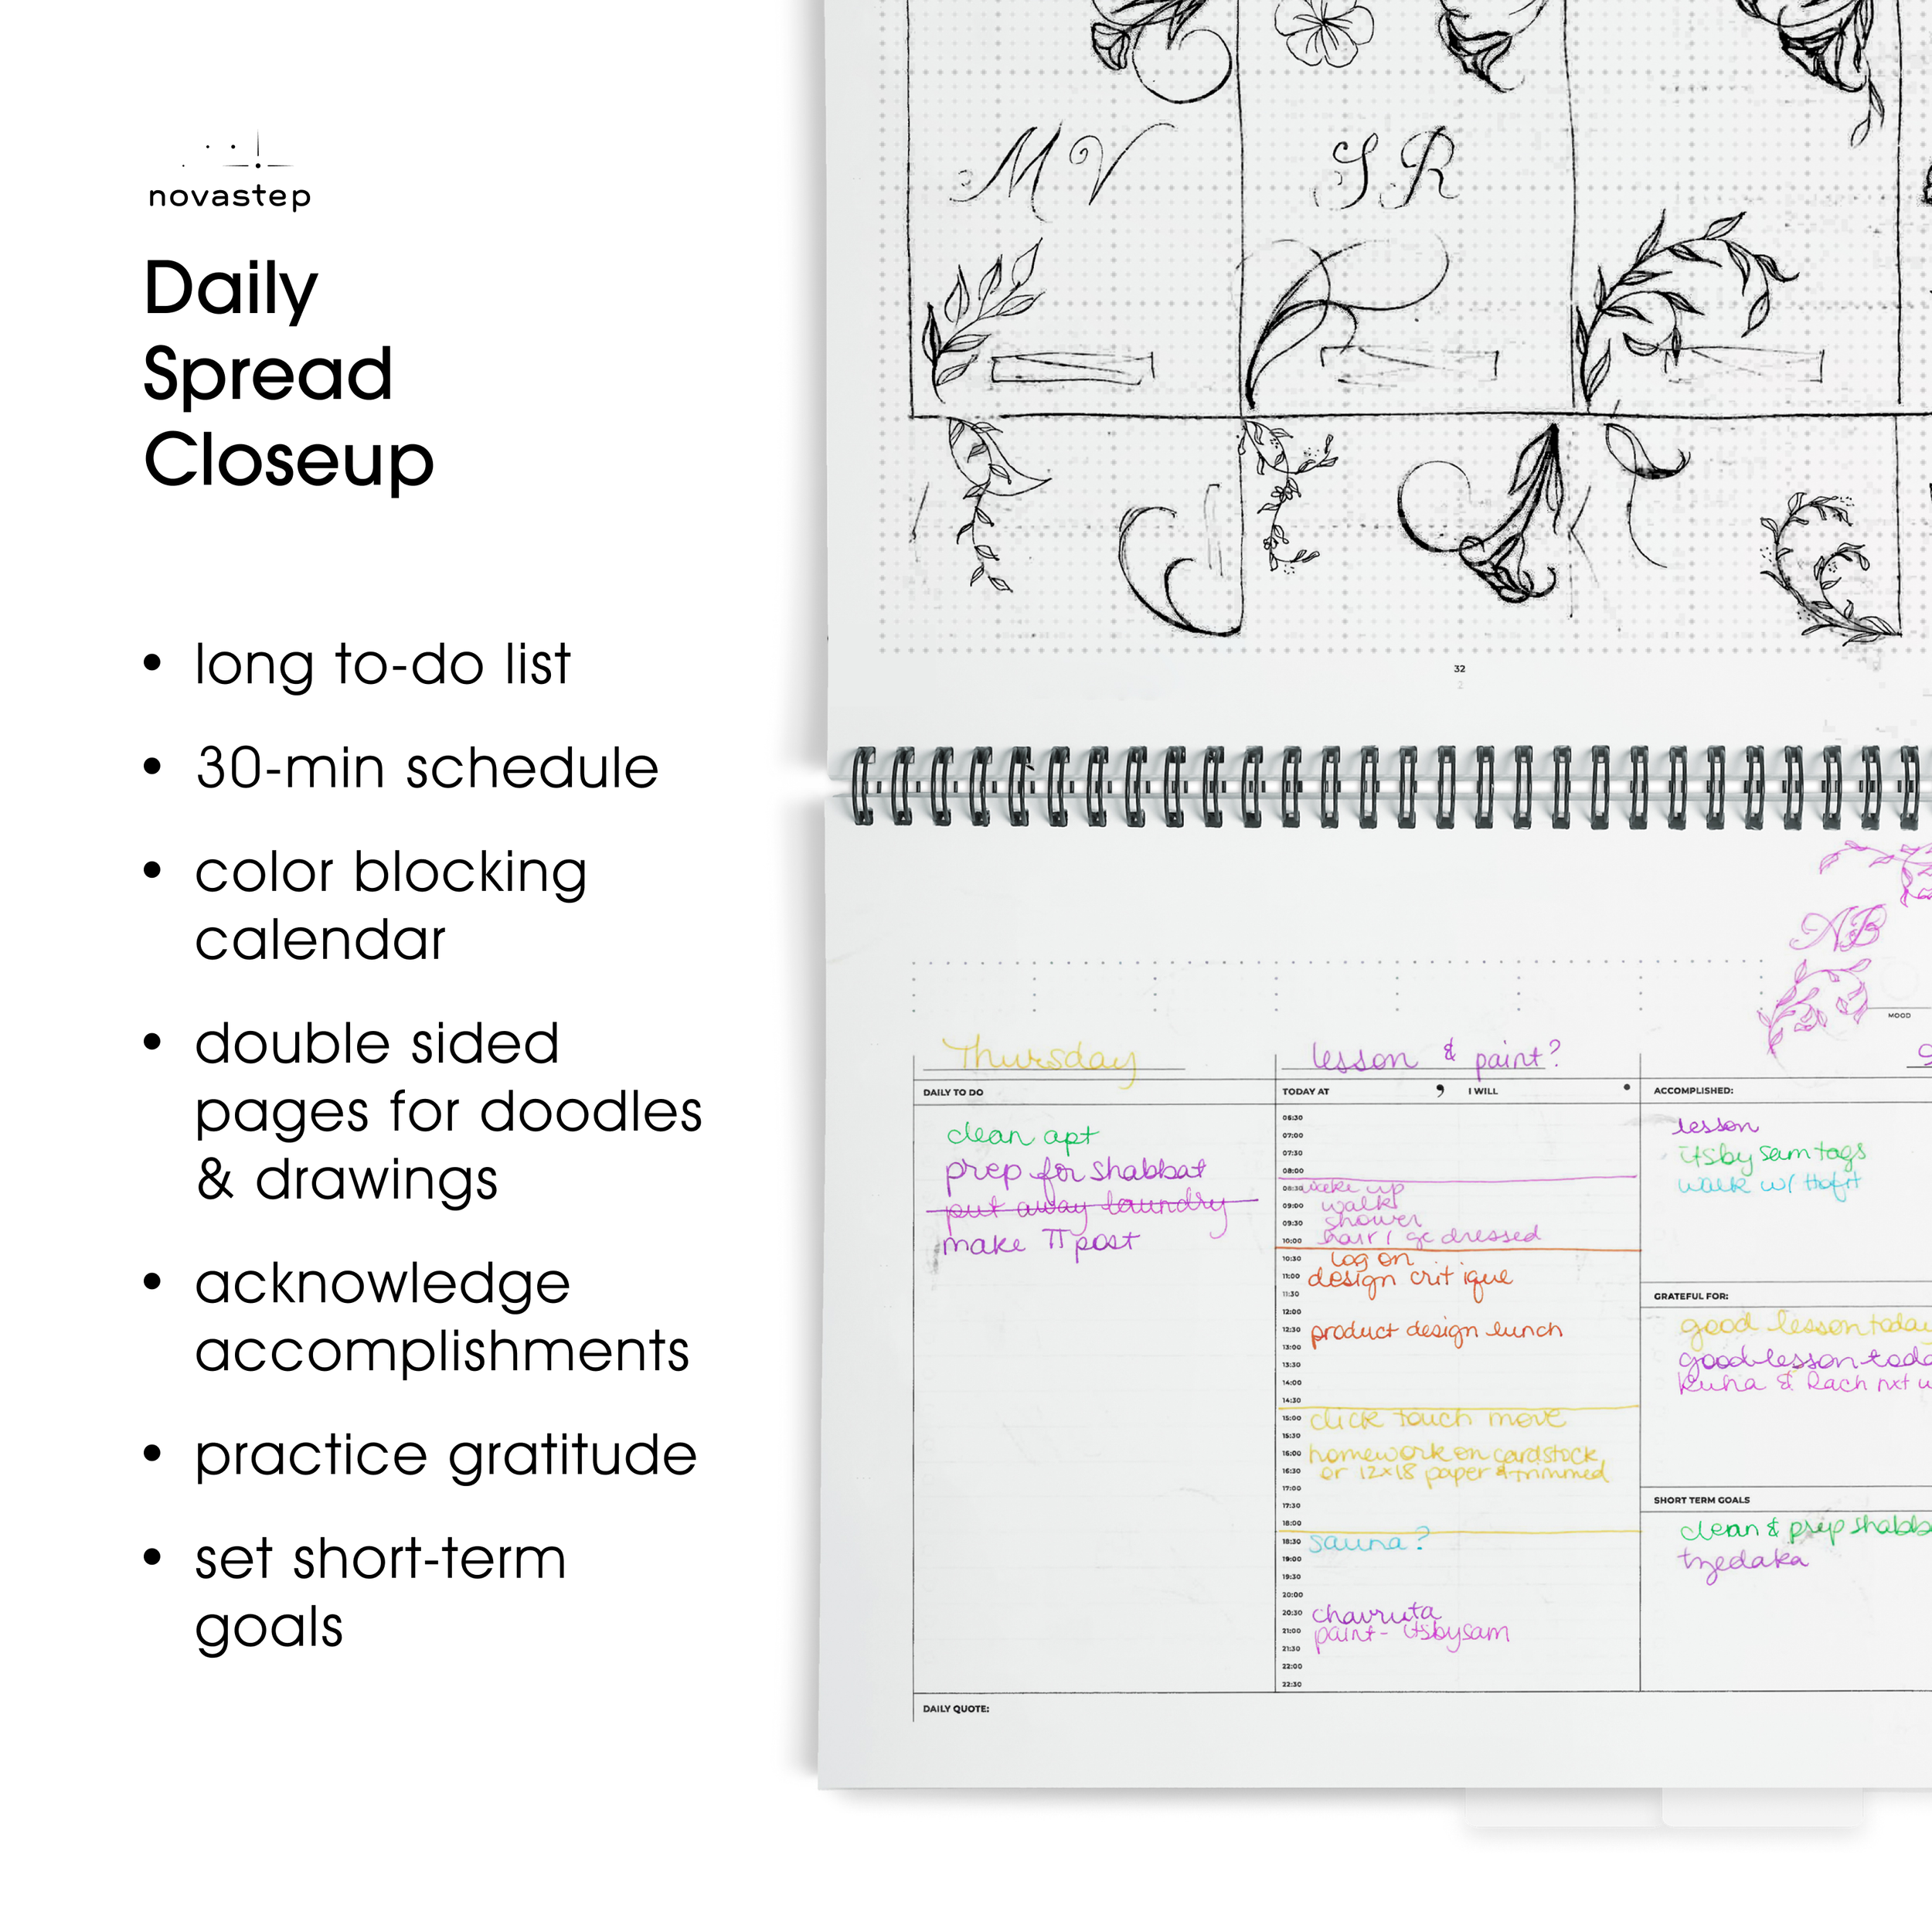 novastep
Daily
Spread
Closeup
• long to-do list
• 30-min schedule
• color blocking
calendar
• double sided
pages for doodles
& drawings
• acknowledge
accomplishments
• practice gratitude
• set short-term
goals
M V
S R
32
2
AB
MOOD
Thursday
lesson & paint?
DAILY TO DO
clean apt
prep for shabbat
put away laundry
make π post
TODAY AT , I WILL .
06:30
07:00
07:30
08:00
08:30 wake up
09:00 walk
09:30 shower
10:00 hair / ge dressed
10:30 log on
11:00 design critique
11:30
12:00
12:30 product design lunch
13:00
13:30
14:00
14:30
15:00 click touch move
15:30
16:00 homework on cardstock
16:30 or 12x18 paper & trimmed
17:00
17:30
18:00
18:30 sauna?
19:00
19:30
20:00
20:30 chavruta
21:00 paint - itsbysam
21:30
22:00
22:30
ACCOMPLISHED:
lesson
itsby sam tags
walk w/
GRATEFUL FOR:
good lesson today
good lesson toda
& Rach nxt w
SHORT TERM GOALS
clean & prep shabb
tzedaka
DAILY QUOTE: